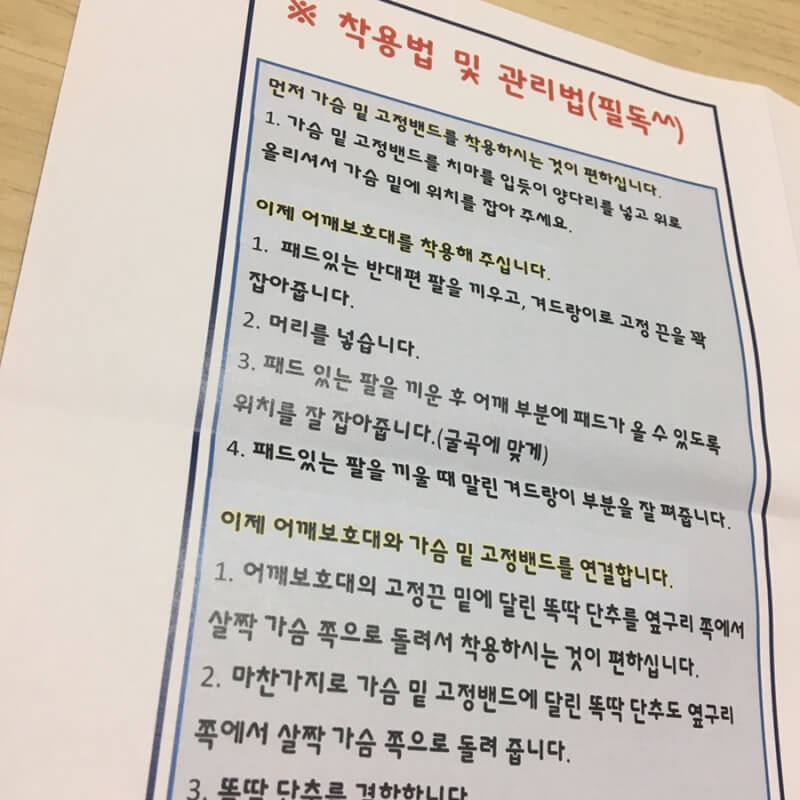 ※ 착용법 및 관리법(필독^^)
먼저 가슴 밑 고정밴드를 착용하시는 것이 편하십니다.
1. 가슴 밑 고정밴드를 치마를 입듯이 양다리를 넣고 위로
올리셔서 가슴 밑에 위치를 잡아 주세요.
이제 어깨보호대를 착용해 주십니다.
1. 패드있는 반대편 팔을 끼우고, 겨드랑이로 고정 끈을 꽉
잡아줍니다.
2. 머리를 넣습니다.
3. 패드 있는 팔을 끼운 후 어깨 부분에 패드가 올 수 있도록
위치를 잘 잡아줍니다.(굴곡에 맞게)
4. 패드있는 팔을 끼울 때 말린 겨드랑이 부분을 잘 펴줍니다.
이제 어깨보호대와 가슴 밑 고정밴드를 연결합니다.
1. 어깨보호대의 고정끈 밑에 달린 똑딱 단추를 옆구리 쪽에서
살짝 가슴 쪽으로 돌려서 착용하시는 것이 편하십니다.
2. 마찬가지로 가슴 밑 고정밴드에 달린 똑딱 단추도 옆구리
쪽에서 살짝 가슴 쪽으로 돌려 줍니다.
3. 똑딱 단추를 결합합니다